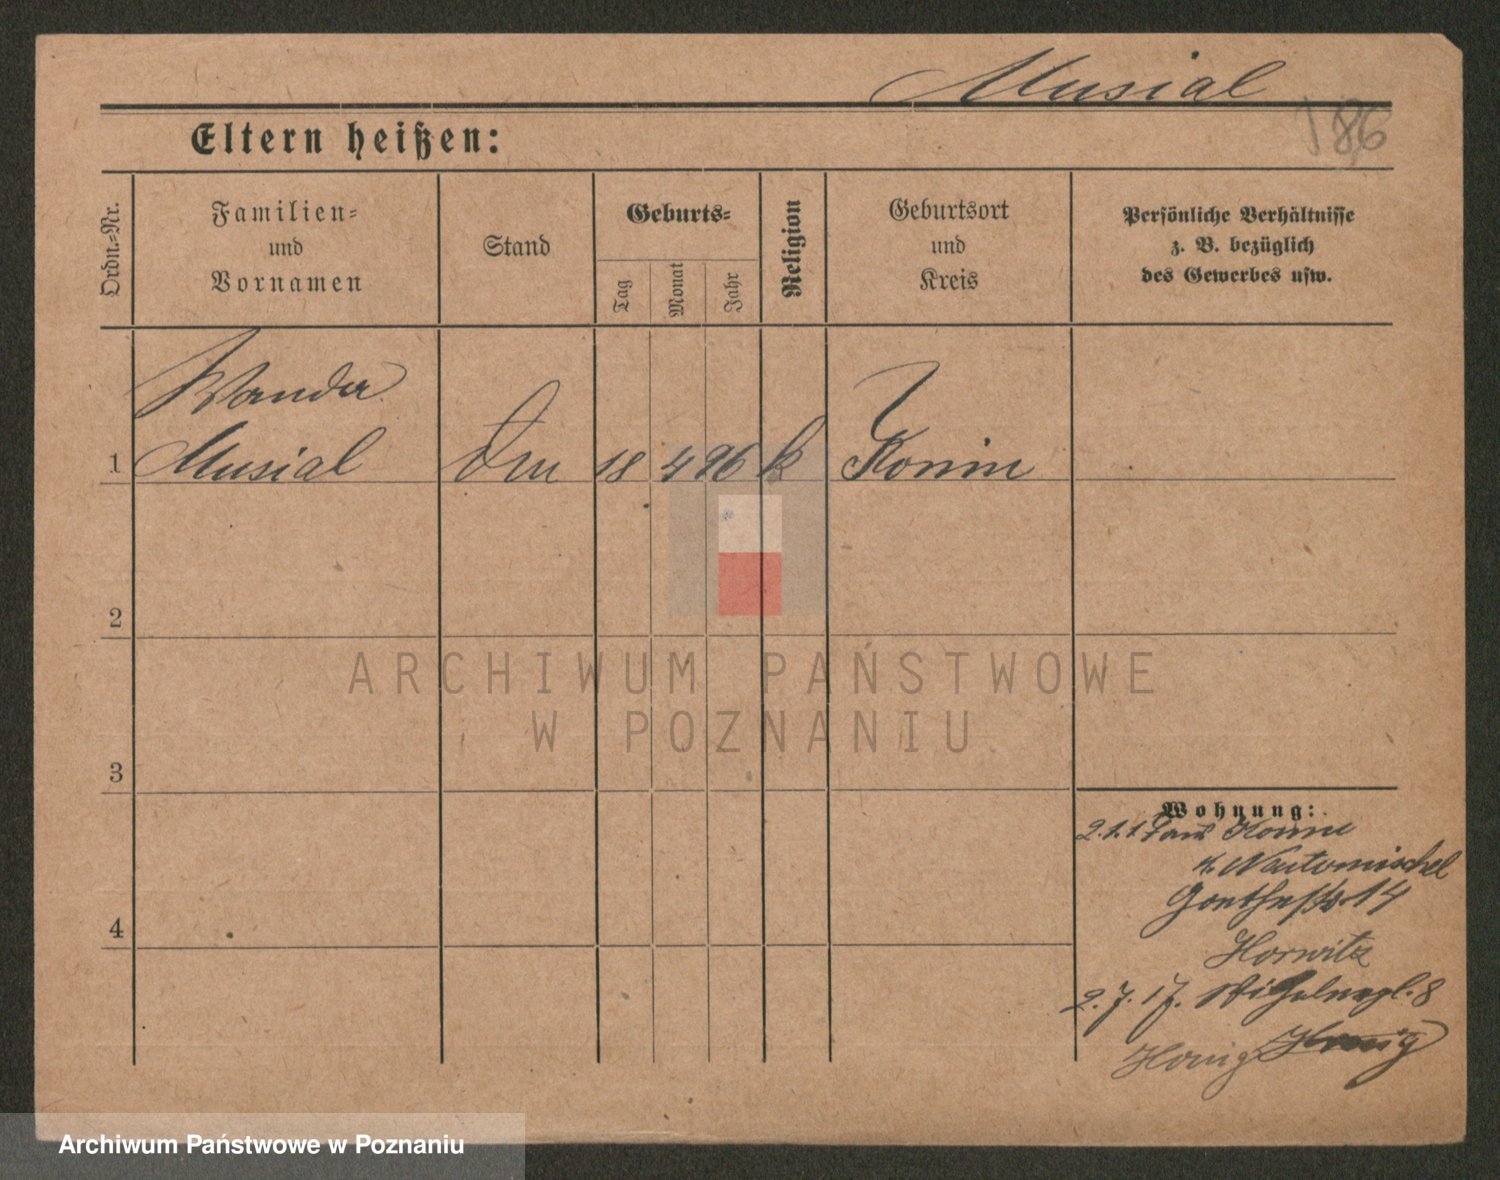 Musial
186
Eltern heißen:
Ordn.-Nr.
Familien-
und
Vornamen
Stand
Geburts-
Tag
Monat
Jahr
Religion
Geburtsort
und
Kreis
Persönliche Verhältnisse
z. B. bezüglich
des Gewerbes usw.
Wanda
1 Musial 18 4 96 k Konin
2
3
4
Wohnung:
2.1.1
Neutomischel
Goethestr 14
Horwitz
2.7.17. Wilhelmspl. 8
Honig Honig
ARCHIWUM PAŃSTWOWE
W POZNANIU
Archiwum Państwowe w Poznaniu